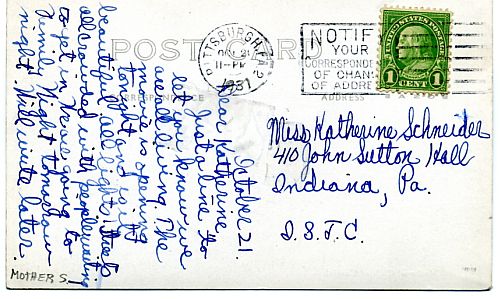 POSTCARD
CORRESPONDENCE
ADDRESS
PITTSBURGH, PA. 2
OCT 21
11-PM
1931
NOTIFY
YOUR
CORRESPONDENTS
OF CHANGE
OF ADDRESS
UNITED STATES POSTAGE
1 CENT 1
October 21.
Dear Katherine
Just a line to
let you know we
are all living. The
movie is opening
tonight and is it
beautiful all lights, streets
all crowded with people waiting
to get in. We're going to
until Night tomorrow
night. Will write later.
MOTHER S.
Miss Katherine Schneider
410 John Sutton Hall
Indiana, Pa.
I.S.T.C.